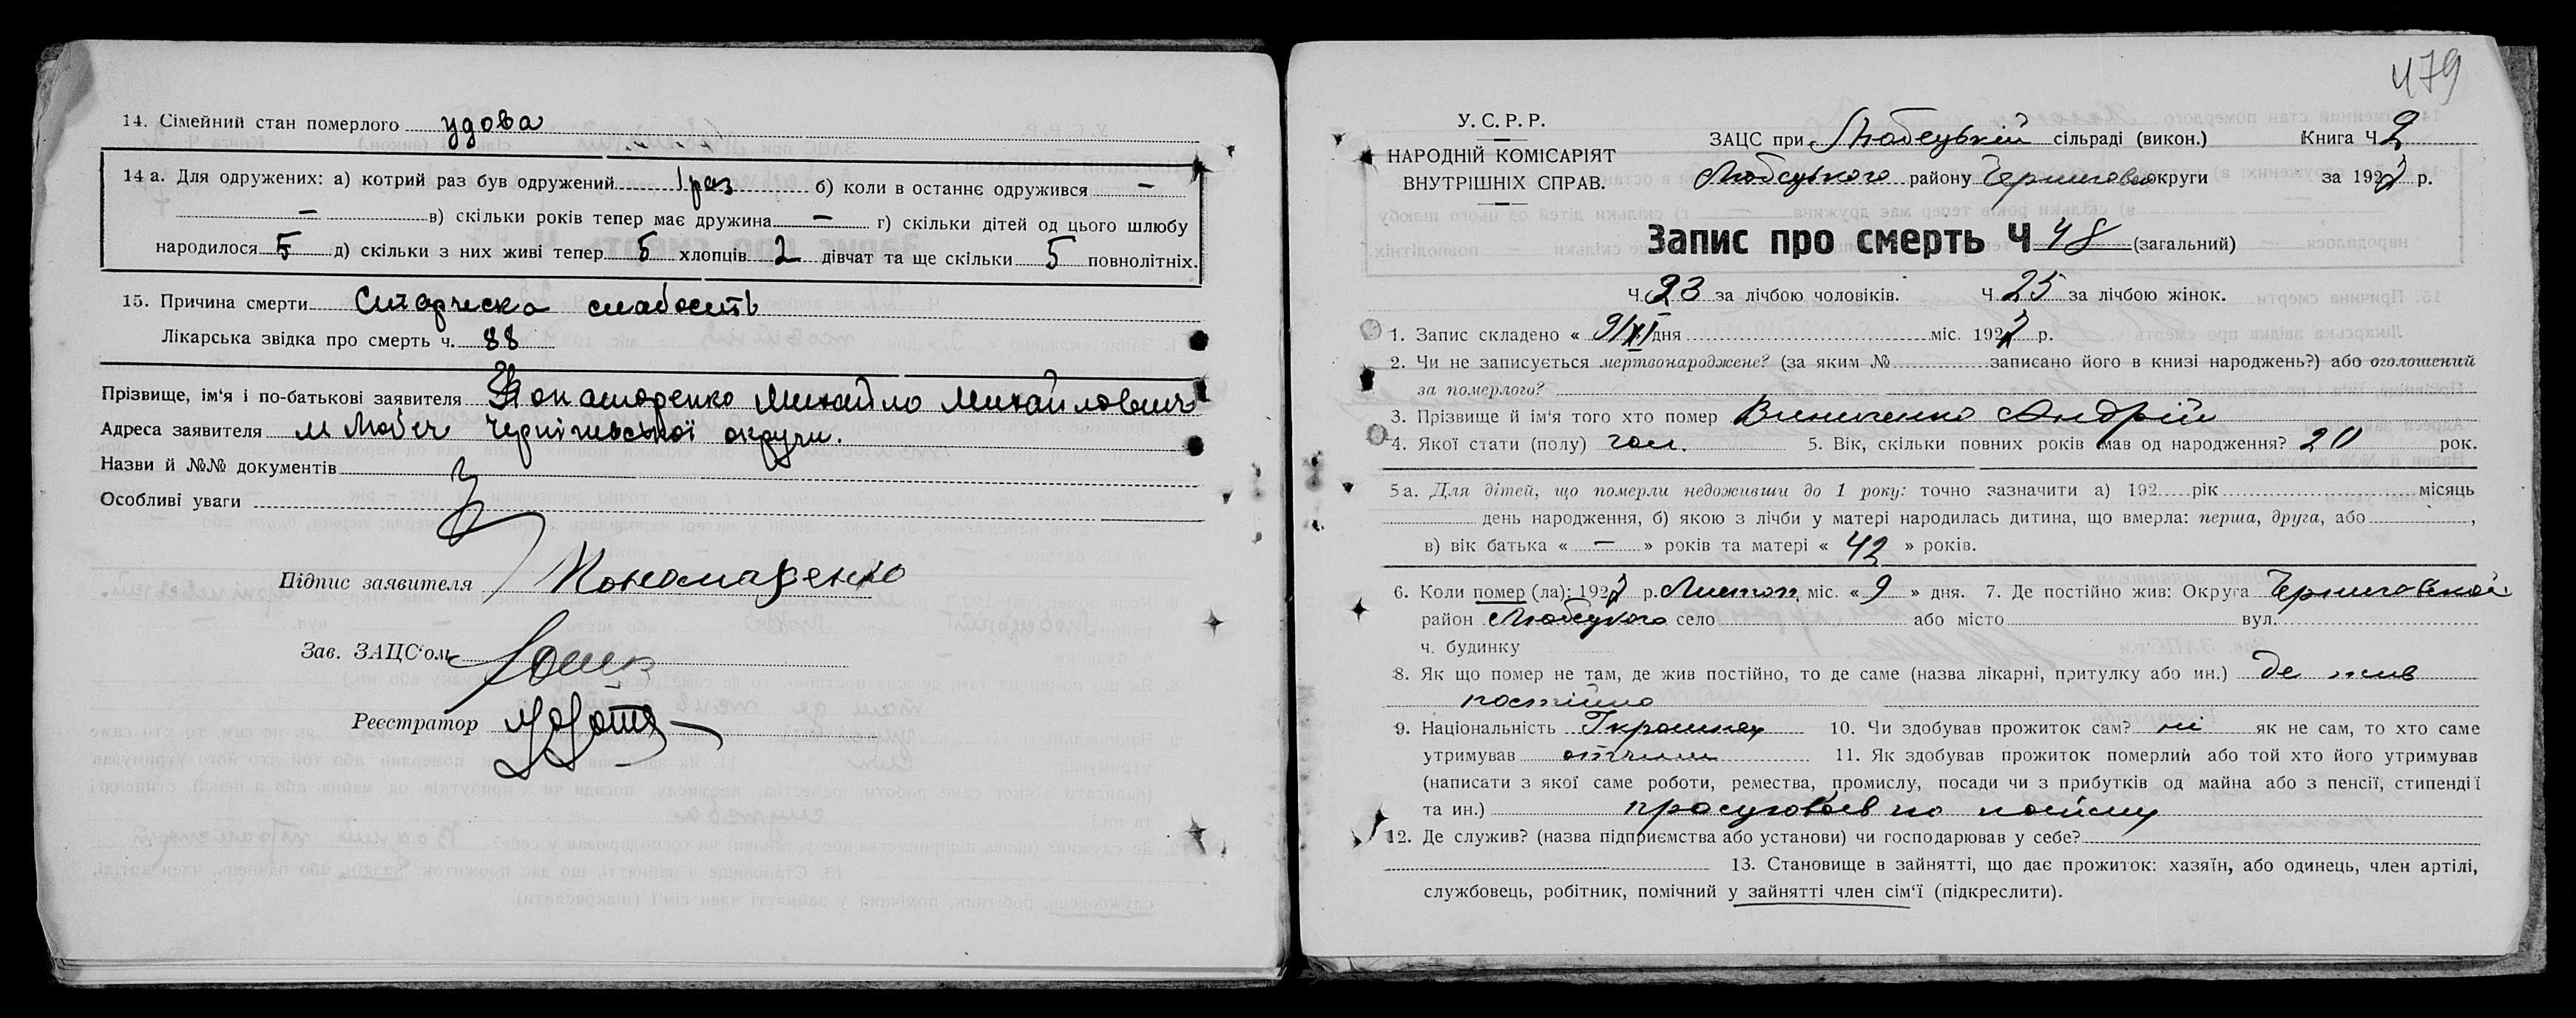 14. Сімейний стан померлого удова
14 а. Для одружених: а) котрий раз був одружений 1 раз б) коли в останнє одружився —
— в) скільки років тепер має дружина — г) скільки дітей од цього шлюбу
народилося 5 д) скільки з них живі тепер 5 хлопців 2 дівчат та ще скільки 5 повнолітніх.
15. Причина смерти Старческа слабость
Лікарська звідка про смерть ч. 88
Прізвище, ім'я і по-батькові заявителя Понаморенко Михайло Михайлович
Адреса заявителя м Любеч Чернигивської округи.
Назви й №№ документів
Особливі уваги
Підпис заявителя Пономаренко
Зав. ЗАЦС'ом
Реєстратор
479
У. С. Р. Р.
НАРОДНІЙ КОМІСАРІЯТ
ВНУТРІШНІХ СПРАВ.
ЗАЦС при Любецькій сільраді (викон.) Книга Ч 2
Любецького району Черниговсько округи за 1927 р.
Запис про смерть Ч 48 (загальний)
Ч 23 за лічбою чоловіків. Ч 25 за лічбою жінок.
1. Запис складено « 9/XI дня міс. 1927 р.
2. Чи не записується мертвонароджене? (за яким № записано його в книзі народжень?) або оголошений
за померлого?
3. Прізвище й ім'я того хто помер Винниченко Андрій
4. Якої стати (полу) чол. 5. Вік, скільки повних років мав од народження? 20 рок.
5 а. Для дітей, що померли недоживши до 1 року: точно зазначити а) 192 рік місяць
день народження, б) якою з лічби у матері народилась дитина, що вмерла: перша, друга, або ,
в) вік батька « — » років та матері « 42 » років.
6. Коли помер (ла): 1927 р. Листоп. міс. « 9 » дня. 7. Де постійно жив: Округа Черниговской
район Любецкого село або місто вул.
ч. будинку
8. Як що помер не там, де жив постійно, то де саме (назва лікарні, притулку або ин.) де жив
постійно
9. Національність Українец 10. Чи здобував прожиток сам? ні як не сам, то хто саме
утримував отчим 11. Як здобував прожиток померлий або той хто його утримував
(написати з якої саме роботи, ремества, промислу, посади чи з прибутків од майна або з пенсії, стипендії
та ин.) по найму
12. Де служив? (назва підприємства або установи) чи господарював у себе?
13. Становище в зайнятті, що дає прожиток: хазяїн, або одинець, член артілі,
службовець, робітник, помічний у зайнятті член сім'ї (підкреслити).